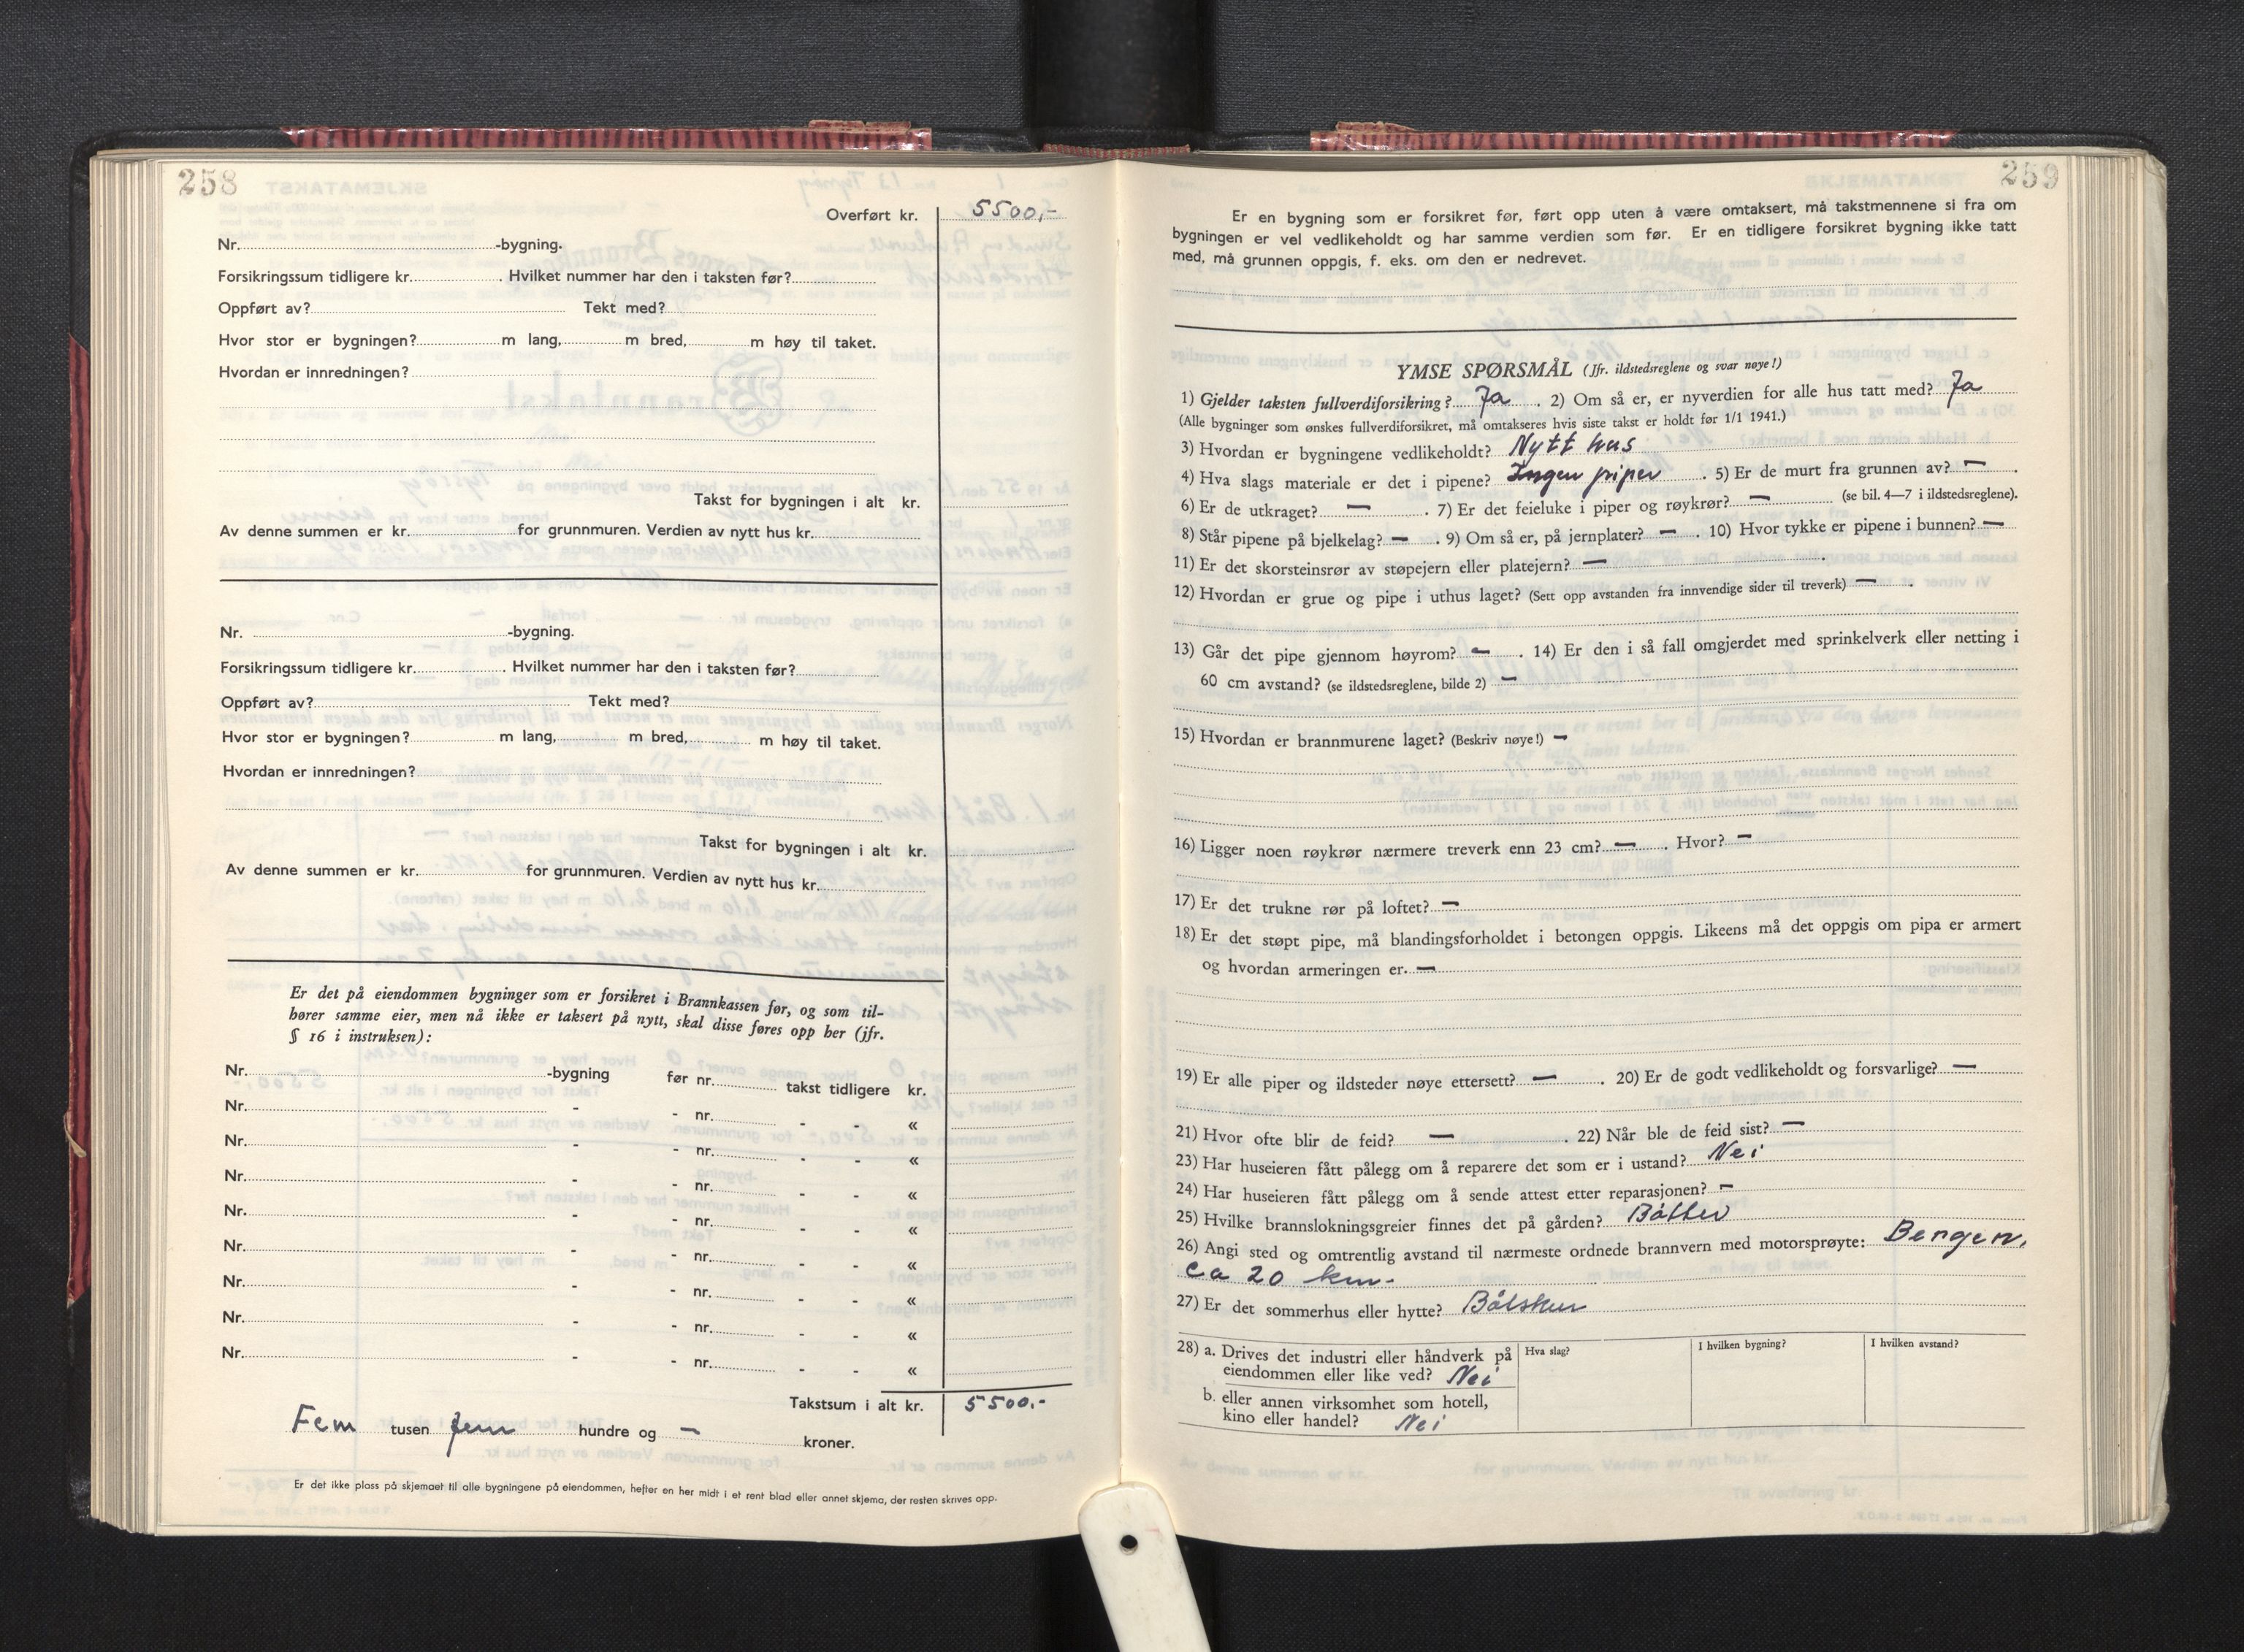 258
Overført kr. 5500,-
Nr. -bygning.
Forsikringssum tidligere kr. . Hvilket nummer har den i taksten før?
Oppført av? Tekt med?
Hvor stor er bygningen? m lang, m bred, m høy til taket.
Hvordan er innredningen?
Takst for bygningen i alt kr.
Av denne summen er kr. for grunnmuren. Verdien av nytt hus kr.
Nr. -bygning.
Forsikringssum tidligere kr. . Hvilket nummer har den i taksten før?
Oppført av? Tekt med?
Hvor stor er bygningen? m lang, m bred, m høy til taket.
Hvordan er innredningen?
Takst for bygningen i alt kr.
Av denne summen er kr. for grunnmuren. Verdien av nytt hus kr.
Er det på eiendommen bygninger som er forsikret i Brannkassen før, og som til-
hører samme eier, men nå ikke er taksert på nytt, skal disse føres opp her (jfr.
§ 16 i instruksen):
Nr. -bygning før nr. takst tidligere kr.
Nr. - - nr. - - «
Nr. - - nr. - - «
Nr. - - nr. - - «
Nr. - - nr. - - «
Nr. - - nr. - - «
Nr. - - nr. - - «
Nr. - - nr. - - «
Nr. - - nr. - - «
Takstsum i alt kr. 5500.-
Fem tusen fem hundre og — kroner.
Er det ikke plass på skjemaet til alle bygningene på eiendommen, hefter en her midt i et rent blad eller annet skjema, der resten skrives opp.
259
Er en bygning som er forsikret før, ført opp uten å være omtaksert, må takstmennene si fra om
bygningen er vel vedlikeholdt og har samme verdien som før. Er en tidligere forsikret bygning ikke tatt
med, må grunnen oppgis, f. eks. om den er nedrevet.
YMSE SPØRSMÅL (Jfr. ildstedsreglene og svar nøye!)
1) Gjelder taksten fullverdiforsikring? Ja . 2) Om så er, er nyverdien for alle hus tatt med? Ja
(Alle bygninger som ønskes fullverdiforsikret, må omtakseres hvis siste takst er holdt før 1/1 1941.)
3) Hvordan er bygningene vedlikeholdt? Nytt hus
4) Hva slags materiale er det i pipene? Ingen piper . 5) Er de murt fra grunnen av? — .
6) Er de utkraget? — . 7) Er det feieluke i piper og røykrør? — (se bil. 4—7 i ildstedsreglene).
8) Står pipene på bjelkelag? — . 9) Om så er, på jernplater? — . 10) Hvor tykke er pipene i bunnen? —
11) Er det skorsteinsrør av støpejern eller platejern? — .
12) Hvordan er grue og pipe i uthus laget? (Sett opp avstanden fra innvendige sider til treverk) — .
13) Går det pipe gjennom høyrom? — . 14) Er den i så fall omgjerdet med sprinkelverk eller netting i
60 cm avstand? (se ildstedsreglene, bilde 2) —
15) Hvordan er brannmurene laget? (Beskriv nøye!) —
16) Ligger noen røykrør nærmere treverk enn 23 cm? — . Hvor? —
17) Er det trukne rør på loftet? —
18) Er det støpt pipe, må blandingsforholdet i betongen oppgis. Likeens må det oppgis om pipa er armert
og hvordan armeringen er. —
19) Er alle piper og ildsteder nøye ettersett? — . 20) Er de godt vedlikeholdt og forsvarlige? —
21) Hvor ofte blir de feid? — . 22) Når ble de feid sist? —
23) Har huseieren fått pålegg om å reparere det som er i ustand? Nei
24) Har huseieren fått pålegg om å sende attest etter reparasjonen? —
25) Hvilke brannslokningsgreier finnes det på gården? Bøtter
26) Angi sted og omtrentlig avstand til nærmeste ordnede brannvern med motorsprøyte: Bergen,
ca 20 km.
27) Er det sommerhus eller hytte? Båtskur
28) a. Drives det industri eller håndverk på
eiendommen eller like ved? Nei
b. eller annen virksomhet som hotell,
kino eller handel? Nei
Hva slag?
I hvilken bygning?
I hvilken avstand?